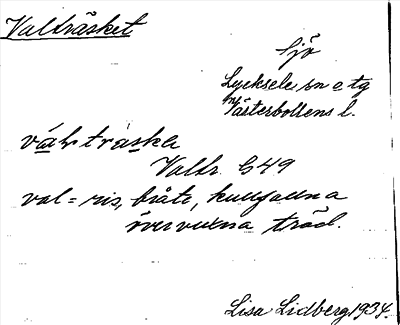 Valträsket
Sjö
Lycksele sn o tg
Västerbottens l.
Valtr. G49
val = ris, bråte, kullfallna
övervuxna träd.
Lisa Lidberg 1934.